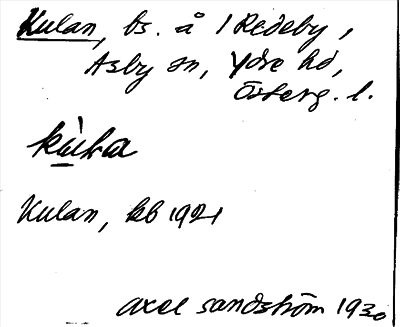 Kulan, bs. å 1 Redeby,
Asby sn, Ydre hd,
Österg. l.
kùla
Kulan, kb 1921
Axel Sandström 1930